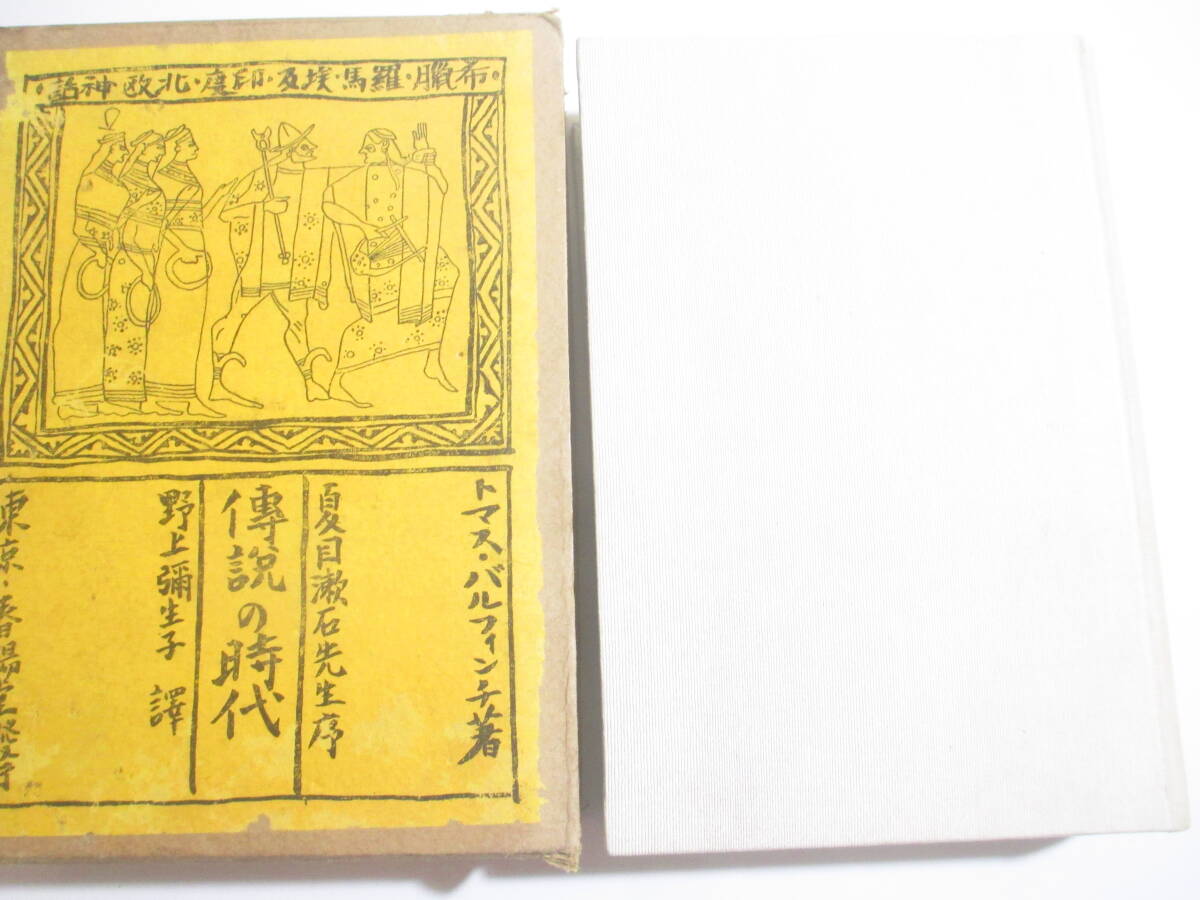 ・希臘・羅馬・埃及・印度・北欧神話・
トマス・バルフィンチ著
夏目漱石先生序
傳説の時代
野上彌生子 譯
東京・春陽堂發行